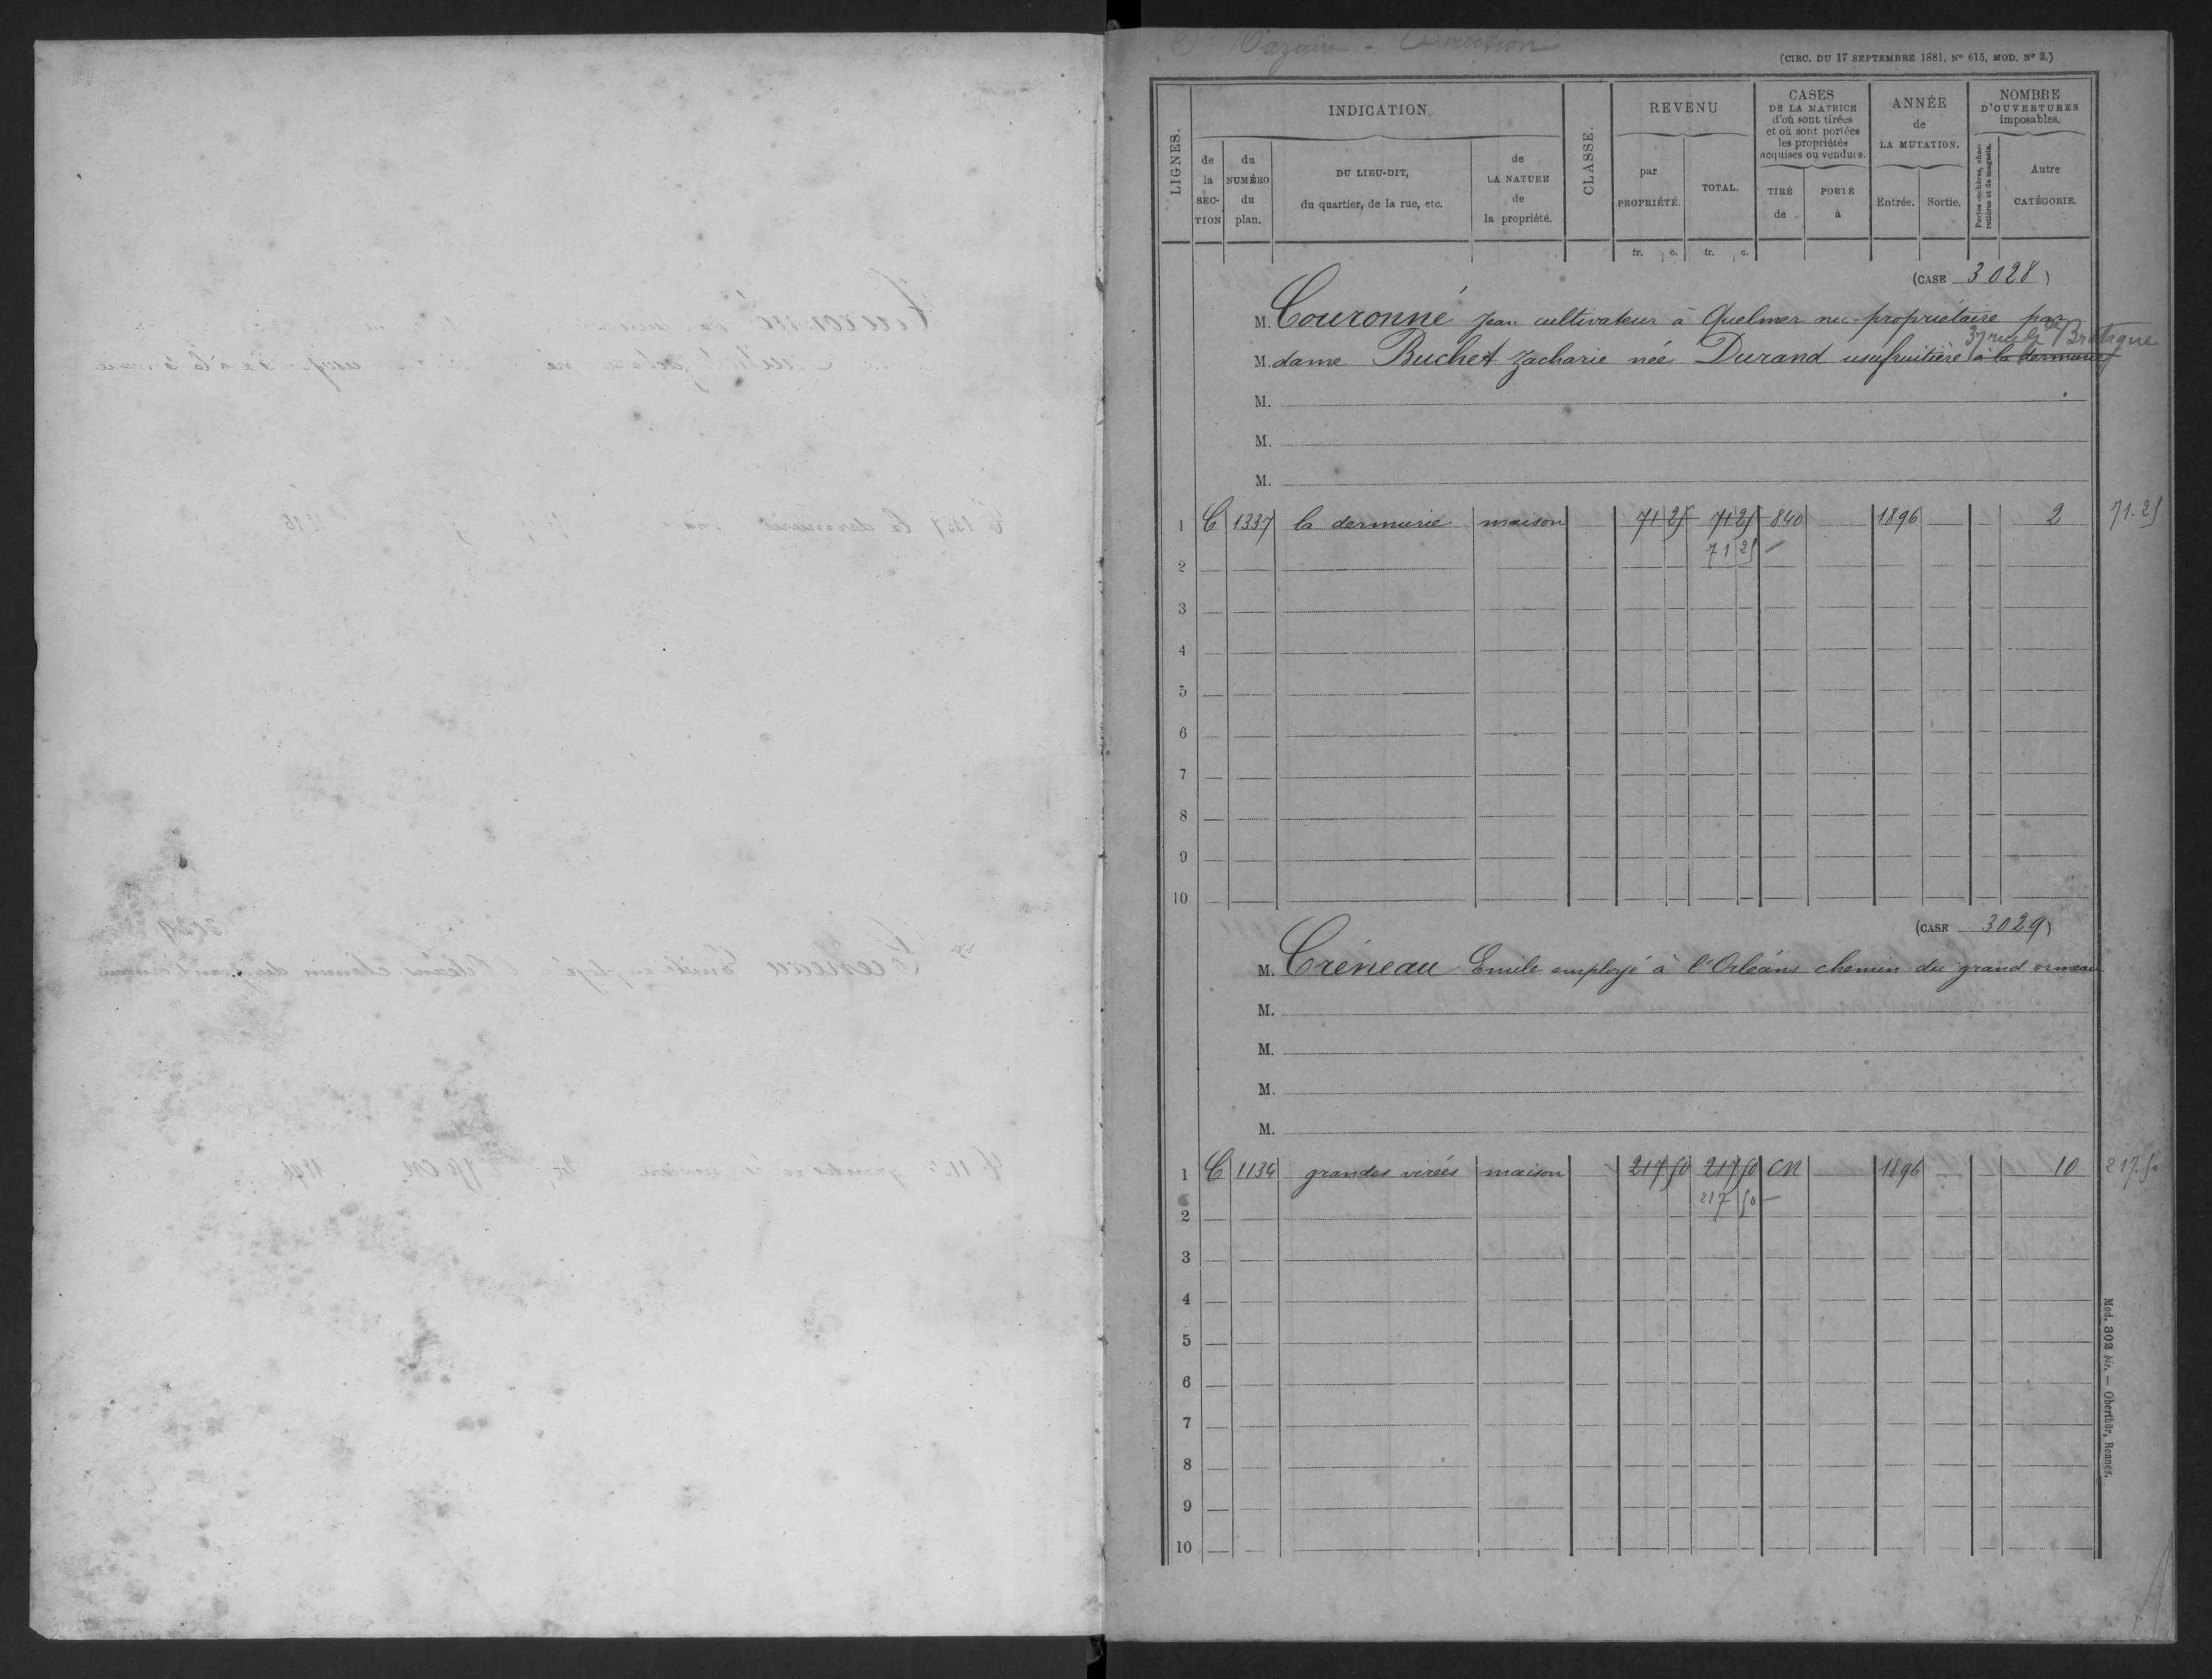 Nazaire - Direction
(CIRC. DU 17 SEPTEMBRE 1881, Nº 615, MOD. Nº 3.)
LIGNES.
INDICATION
de la SECTION
du NUMÉRO du plan.
DU LIEU-DIT, du quartier, de la rue, etc.
de LA NATURE de la propriété.
CLASSE.
REVENU
par PROPRIÉTÉ.
TOTAL.
CASES DE LA MATRICE d'où sont tirées et où sont portées les propriétés acquises ou vendues.
TIRÉ de
PORTÉ à
ANNÉE de LA MUTATION.
Entrée.
Sortie.
NOMBRE D'OUVERTURES imposables.
Portes cochères, charretières et de magasin.
Autre CATÉGORIE.
fr. c. fr. c.
(CASE 3028)
M. Couronné Jean cultivateur à Quelmer nu-propriétaire par
37 rue de Bretagne
M. dame Buchet Zacharie née Durand usufruitière à la dermurie
M.
M.
M.
1 C 1337 la dermurie maison 71 25 71 25 840 1896 2 71.25
71 25
2
3
4
5
6
7
8
9
10
(CASE 3029)
M. Créneau Emile employé à l'Orléans chemin du grand ormeau
M.
M.
M.
M.
1 C 1134 grandes virées maison 217 50 217 50 CN 1896 10 217.50
217 50
2
3
4
5
6
7
8
9
10
Mod. 302 bis. — Oberthür, Rennes.